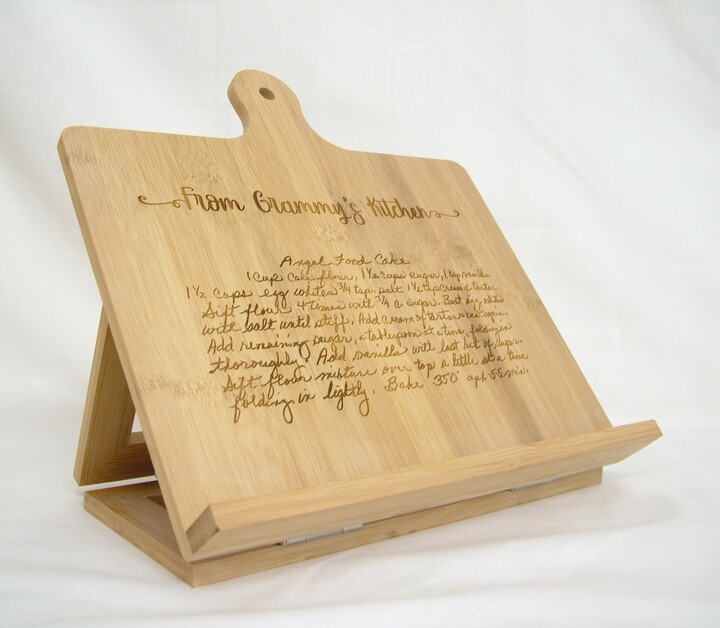 From Grammy's Kitchen
Angel Food Cake
1 cup cake flour, 1½ cups sugar, 1 tsp vanilla
1½ cups egg whites ¾ tsp. salt 1½ tsp cream of tartar
Sift flour 4 times with ¾ c sugar. Beat egg whites
with salt until stiff. Add cream of tartar & beat again.
Add remaining sugar, a tablespoon at a time, folding in
thoroughly. Add vanilla with last bit of sugar.
Sift flour mixture over top a little at a time
folding in lightly. Bake 350° apx 55 min.